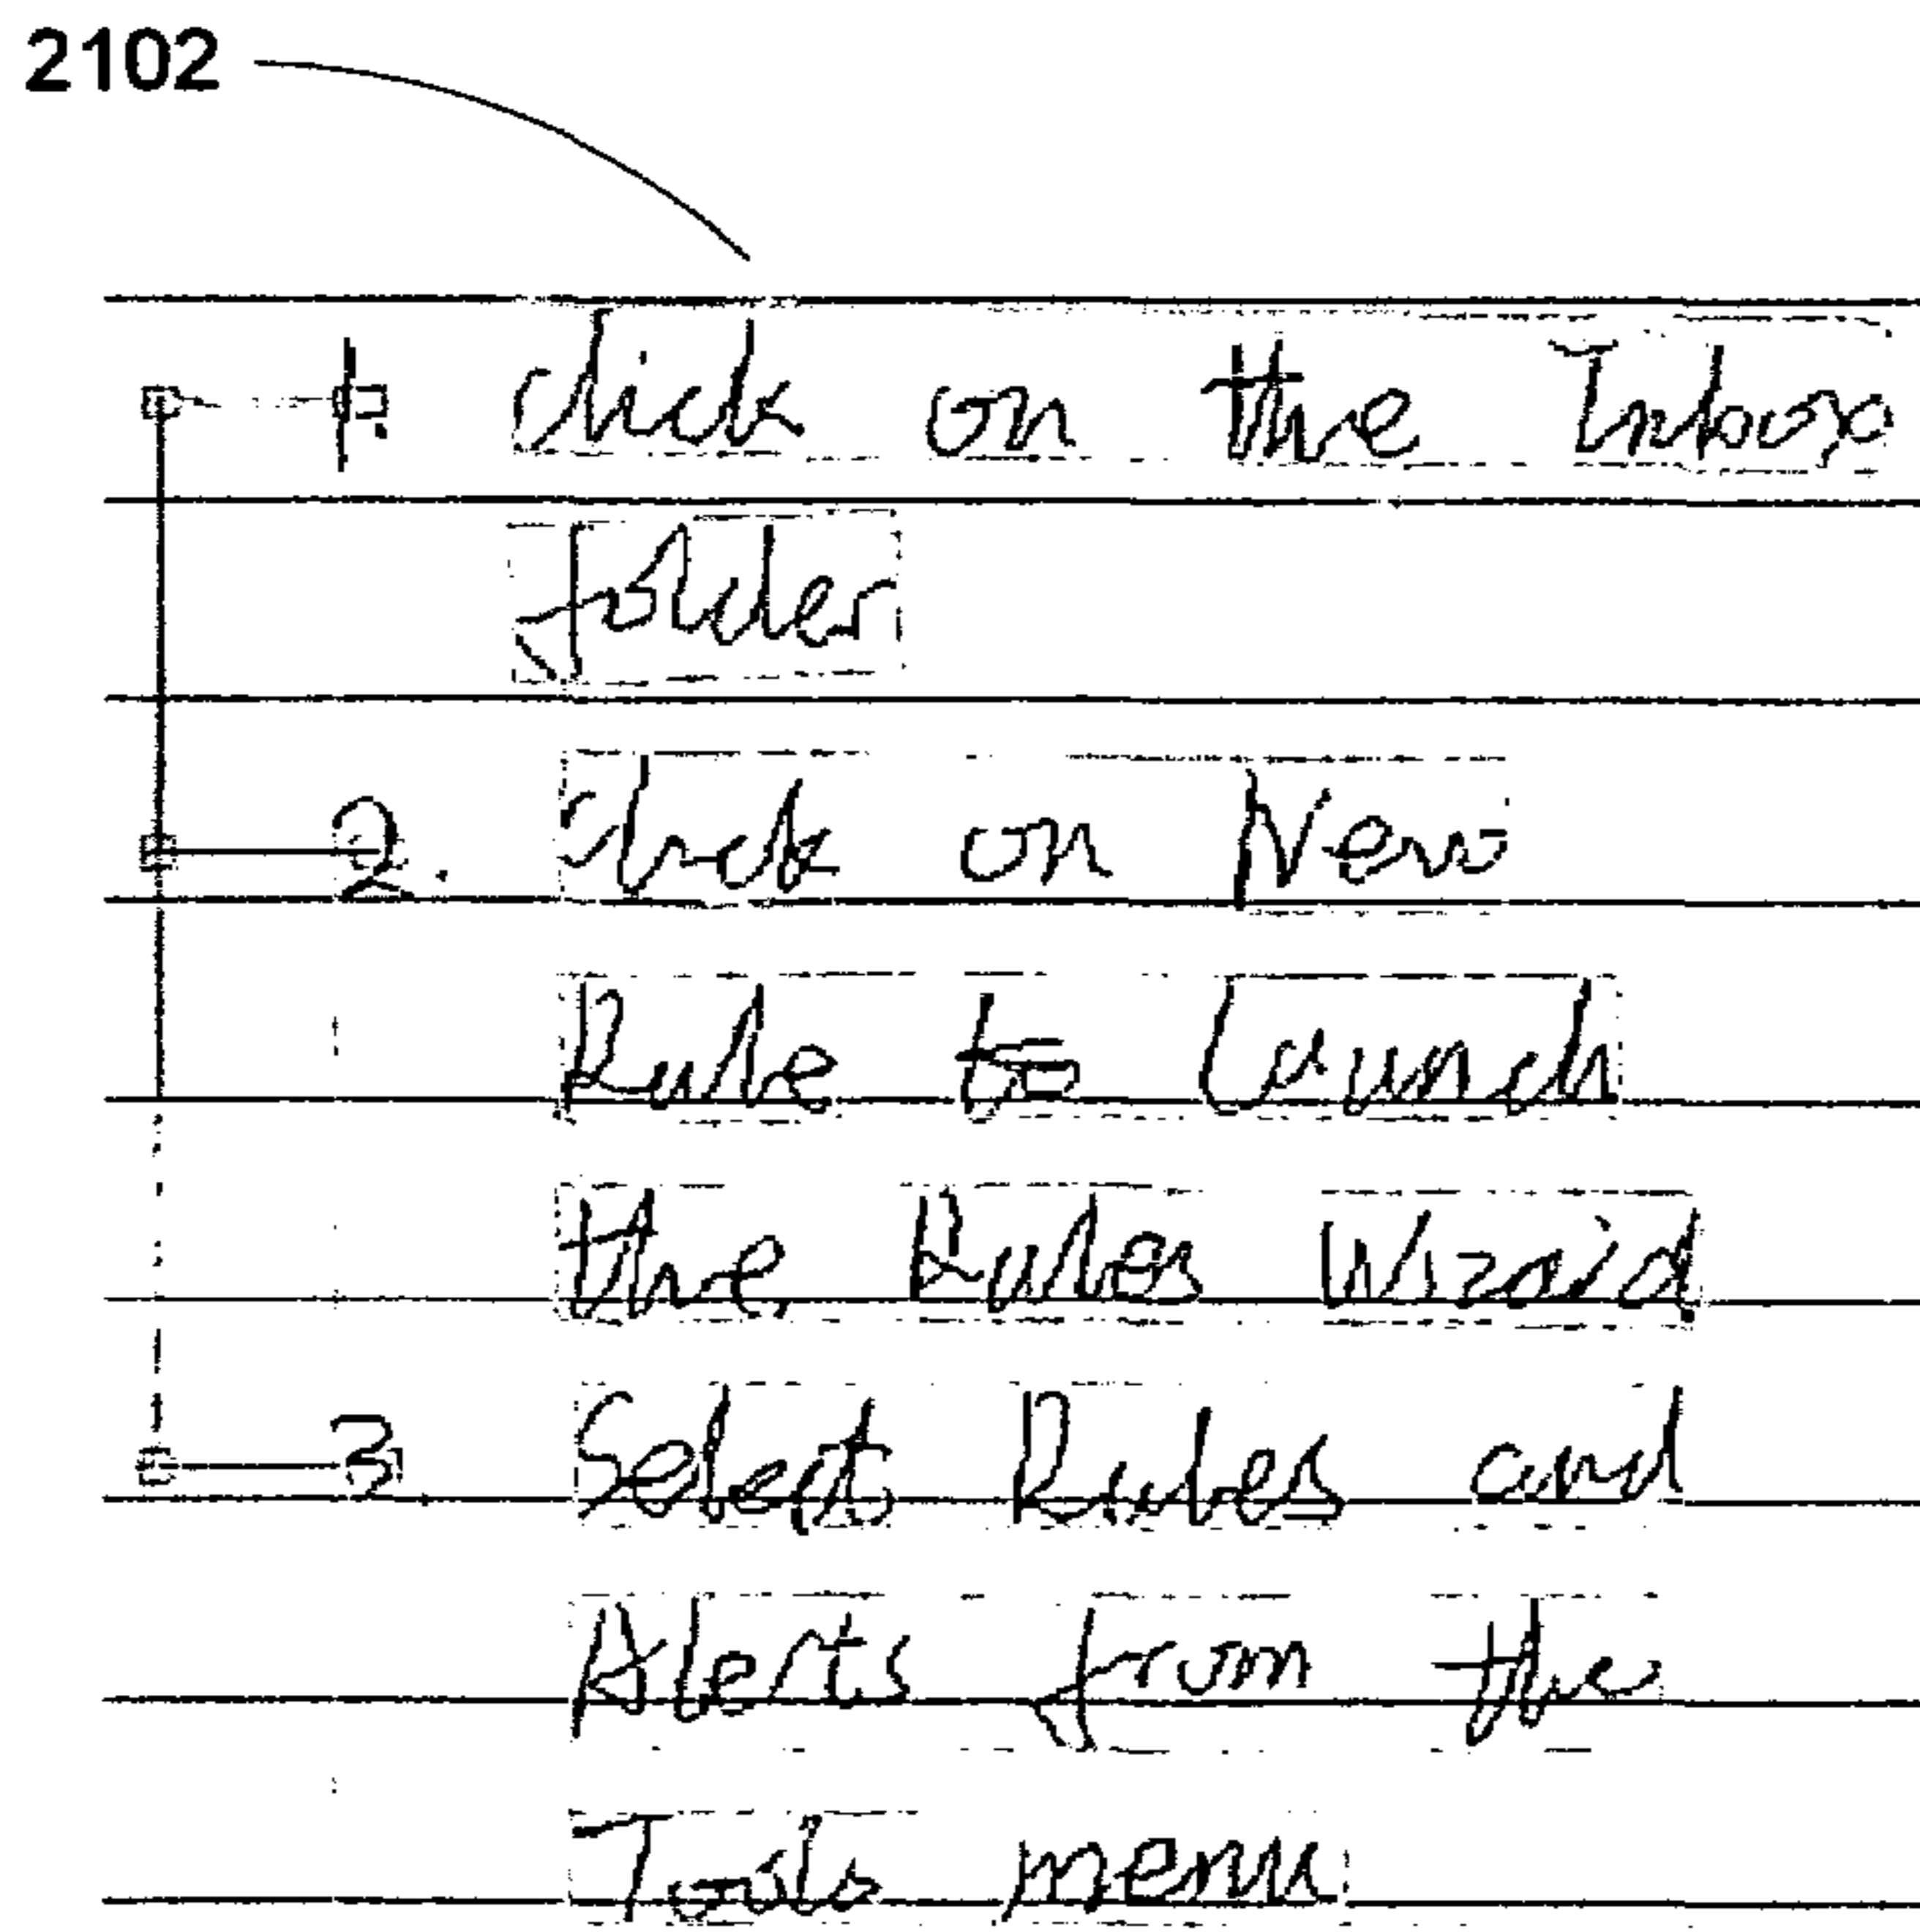 2102
1. Click on the Inbox
folder
2. Click on New
Rule to launch
the Rules Wizard
3 Select Rules and
Alerts from the
Tools menu